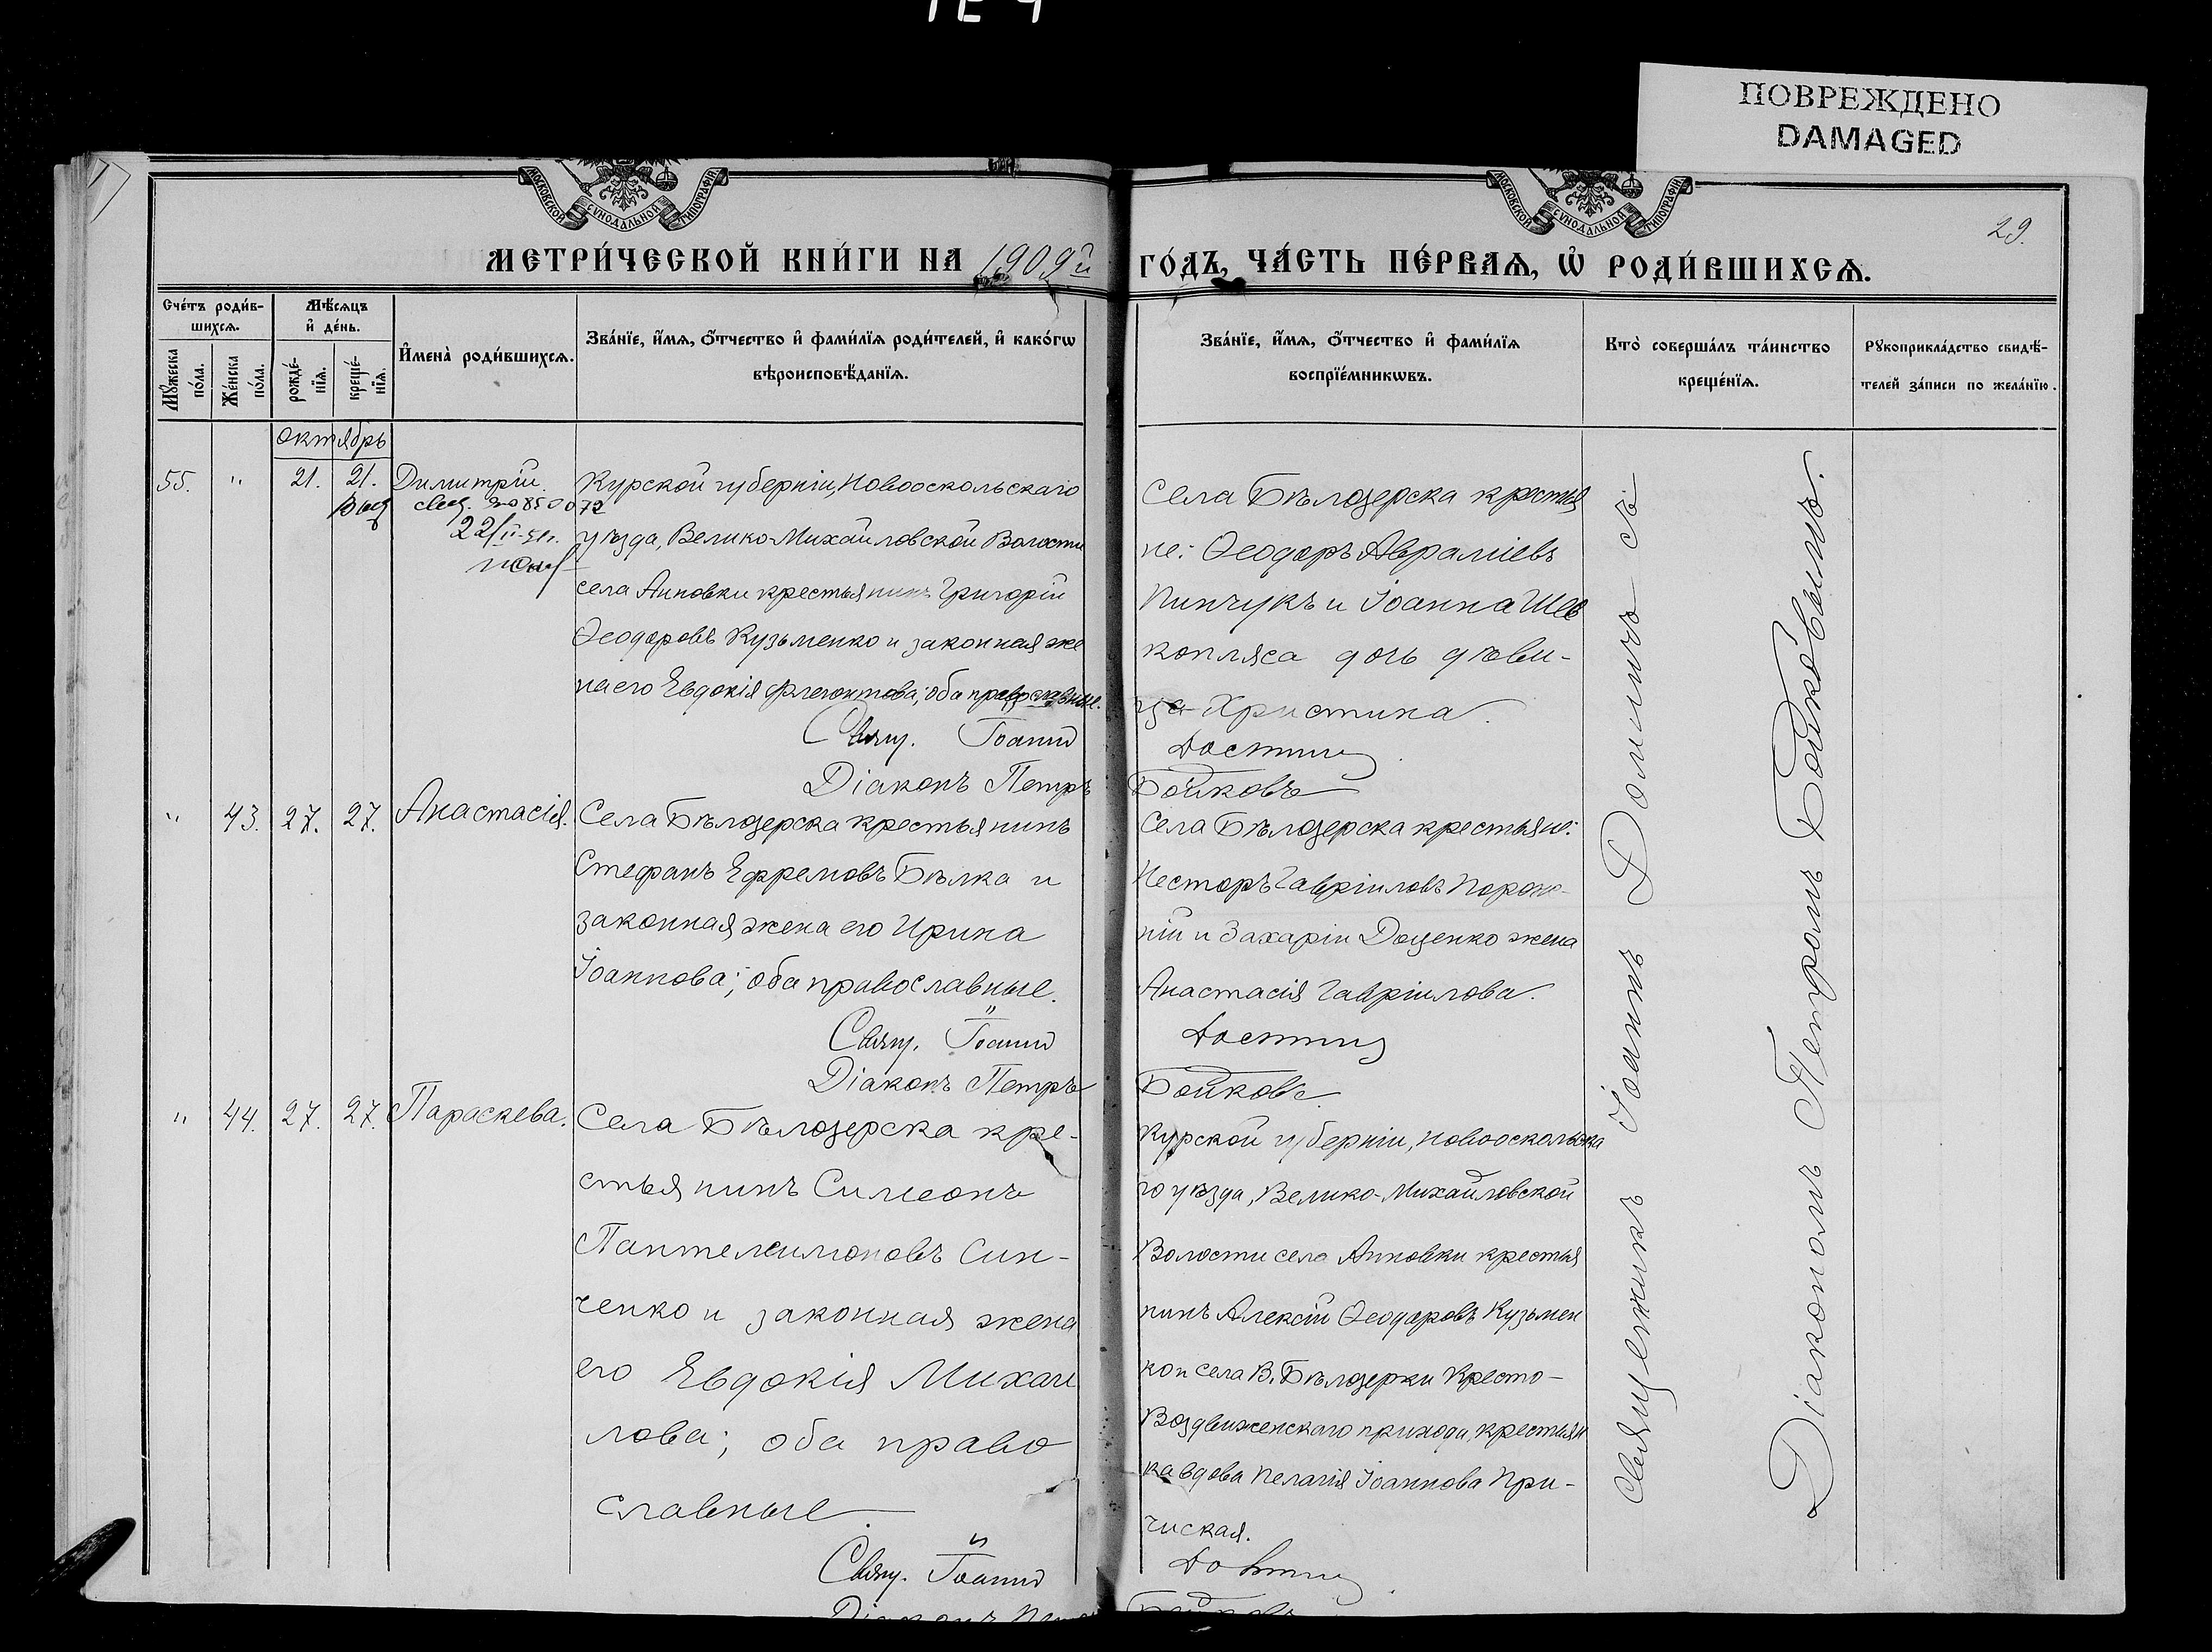 ПОВРЕЖДЕНО
DAMAGED
МОСКОВСКОЙ СѴНОДАЛЬНОЙ ТИПОГРАФІИ
МОСКОВСКОЙ СѴНОДАЛЬНОЙ ТИПОГРАФІИ
29.
МЕТРИ́ЧЕСКОЙ КНИ́ГИ НА 1909й ГО́ДЪ, ЧА́СТЬ ПЕ́РВАѦ, Ѡ҆ РОДИ́ВШИХСѦ.
Сче́тъ роди́в-
шихсѧ.
Мꙋ́жеска по́ла.
Же́нска по́ла.
Мѣ́сѧцъ
и҆ де́нь.
рожде́-
нїѧ.
креще́-
нїѧ.
И҆мена̀ роди́вшихсѧ.
Зва́нїе, и҆́мѧ, ѻ҆́тчество и҆ фами́лїѧ роди́телей, и҆ како́гѡ
вѣроисповѣ́данїѧ.
Зва́нїе, и҆́мѧ, ѻ҆́тчество и҆ фами́лїѧ
воспрїе́мникѡвъ.
Кто̀ соверша́лъ та́инство
креще́нїѧ.
Рꙋкоприкла́дство свидѣ́-
телей за́писи по жела́нїю.
октябрь
55. " 21. 21. Димитрій.
22/II-51г.
Курской губерніи, Новооскольскаго
уѣзда, Велико-Михайловской Волости
села Анновки крестьянинъ Григорій
Ѳеодоровъ Кузьменко и законная же
на его Евдокія Флегонтова; оба православные.
Свящ. Іоаннъ
Діаконъ Петръ
Села Бѣлозерска крестья
не: Ѳеодоръ Авраміевъ
Пинчукъ и Іоанна Шев
копляса дочь дѣви-
ца Христина.
Бойковъ
" 43. 27. 27. Анастасія.
Села Бѣлозерска крестьянинъ
Стефанъ Ефремовъ Бѣлка и
законная жена его Ирина
Іоаннова; оба православные.
Свящ. Іоаннъ
Діаконъ Петръ
Села Бѣлозерска крестьяне:
Несторъ Гавріиловъ
и Захаріи Доценко жена
Анастасія Гавріилова.
Бойковъ.
" 44. 27. 27. Параскева.
Села Бѣлозерска кре-
стьянинъ Симеонъ
Пантелеимоновъ Син-
ченко и законная жена
его Евдокія Михаи
лова; оба право
славные.
Свящ. Іоаннъ
Діаконъ
Курской губерніи, Новооскольска
го уѣзда, Велико-Михайловской
Волости села Анновки крестья
нинъ Алексій Ѳеодоровъ Кузьмен
ко и села В. Бѣлозерки Кресто-
Воздвиженскаго прихода, крестьян
ка вдова Пелагія Іоаннова При-
чиская.
Бойковъ
Священникъ Іоаннъ съ
Діакономъ Петромъ Бойковымъ.